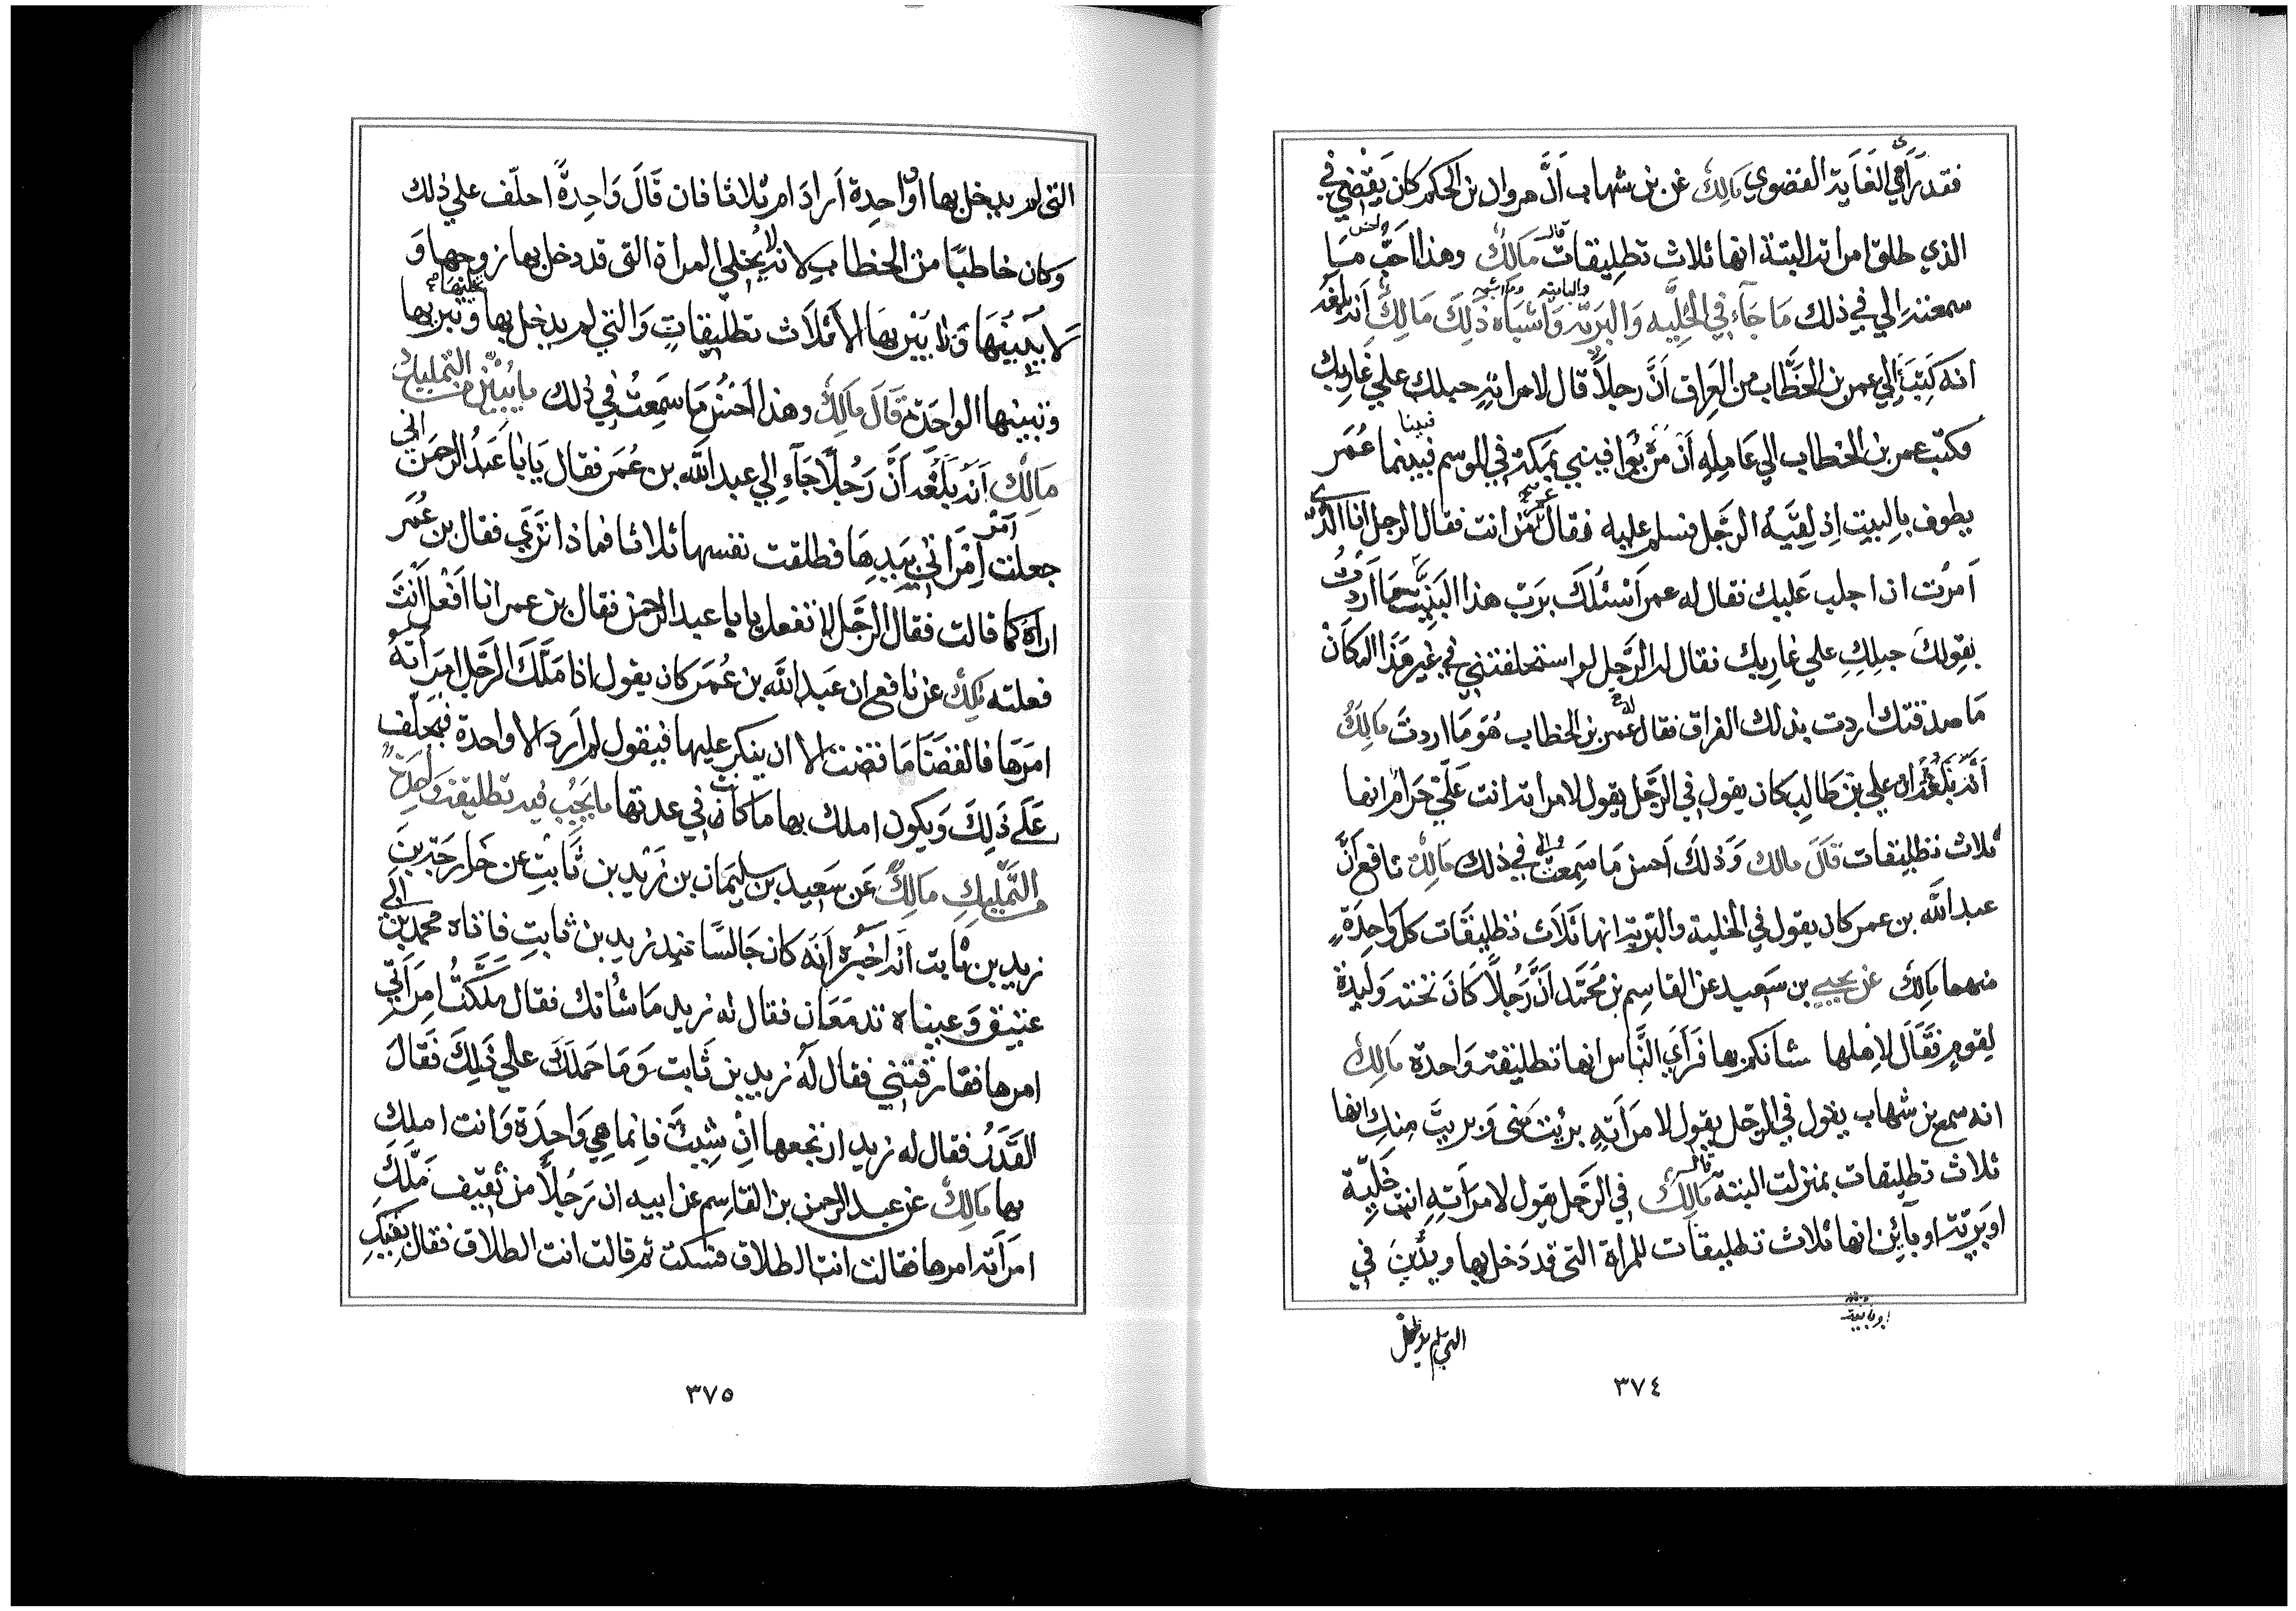 فقد رَمَي الغَايَة القصوي مالِكُ عَن بن شهاب اَنَّ مروان بن الحكم كان يَقْضِي في
الذي طلق امراته البتة انها ثلاث تطلِيقات قال مَالِكُ وهذا احَبُّ مَا
سمعته الي في ذلك مَا جَآءَ في الخَلِيَّه وَالبَريّه وَاَشباهِ ذَلِكَ مَالِكُ اَنه بلغه
انه كَتِبَ اِلي عمر بن الخطَّاب من العَراق اَنَّ رجلاً قال لامراتهِ حبلك علي غاربك
فكتب عمر بن الخطاب الي عَامِلِهِ اَنْ مُرْهُ يوافيني بمكة في الموسم فبينما عُمَر
يطوف بِالبيت اِذ لِقيَهُ الرجَّل فسلم عليه فقال عمر مَن انت فقال الرجل انا الذي
اَمَرْت ان اجلب عَليك فقال له عمر اَسْئلكَ بَربّ هذا البَنِيَّة مَا اَردْتَ
بقولكَ حبلِكِ علي غارِبك فقال له الرَّجل لو استحلفتني في غير هَذَا المكَان
مَا صدقتك اردت بذلك الفراق فقال عمر بن الخطاب هُوَ مَا اردتَ مَالِكُ
اَنَّه بَلَغَهُ ان علي بن طَالِب كان يقول في الرَّجل يقول لامراته انت عَلَيَّ حَرَامُ انها
ثلاث تطلِيقات قَالَ مالك وَذلكَ اَحسن مَا سَمِعتُ في ذلك مَالِكُ نافع اَنَّ
عبد الله بن عمر كان يقول في الخلية والبَريّة انها ثَلاَث تطليقَات كل وَاحِدَةٍ
منهما مَالِكُ عَن يحيي بن سَعيد عن القاسِم بن مُحَمَّد اَنَّ رَجُلاً كَانَ تَحْتَه وَليدَة
لِقَومٍ فَقَالَ لاِهلها شانكم بها فَرَاَي النَّاس انها تطليقة وَاحدة مَالِكُ
انه سمع بن شهاب يقول في الرَّجل يقول لامرَاَتِهِ برئِت مَنى وَبريتَ مِنكِ انها
ثلاث تطليقات بمنزلت البتة قال مَالِكُ في الرَّجل يقول لامرَاَتِهِ انت خَلِيّة
او بَرِيّة او بآئِن انها ثلاث تطليقَات للمراة التى قد دَخل بها ويدَيّنَ في
التي لم يدخل
٣٧٤
التى لم يدخل بها اَوَاحِدة اَرادَ ام ثلاثا فان قَالَ وَاحِدةً احلّف علي ذلك
وكان خاطبًا من الخطاب لانه لا يُخلي المراة التى قد دخل بها زوجها وَ
لا يُبينُهَا وَلا يَبْريها الاَّ ثلاَث تطلّيقاتٍ وَالتي لم يدخل بها وتبريها
وتبينها الواحَدة قَالَ مَالِكُ وهذا احَسْنُ مَا سَمِعتُ في ذلك ما يُبَيّن من التمليك
مَالِكُ اَنه بَلَغَه اَنَّ رَجُلاً جَآءَ الي عبد الله بن عُمَر فقال يَا بَا عَبْد الرحمَن اني
جعلت اَمْر اِمْرَاتي بِيَدِهَا فطلقت نفسها ثلاثا فماذا تَرَي فقال بن عُمَر
ارَاهُ كما قالت فقال الرَّجل لا تفعل يا با عبد الرحمن فقال بن عمر انا اَفْعَل اَنْتَ
فعلته مَالِكُ عن نافع ان عَبد الله بن عُمَر كان يقول اذا مَلَّكَ الرَّجل امرَاَتهُ
امَرَها فالقضَآ مَا قضت الا ان ينكر عليها فيقول لم اَرد الا واحدة فيَحلّف
عَلَے ذَلِكَ وَيكون املك بها مَا كانت في عدتها ما يَجِبُ فيه تطليقة واحدة
من التَّمْليكِ مَالِكُ عَن سَعيد بن سليمان بن زَيْد بن ثَابتِ عن خَارجَة بن
زيد بن ثَابت اَنه اَخْبَرَهُ اَنَّه كان جَالسًا عند زيد بن ثابتِ فاتاه محمد بن ابي
عتيق وَعيناه تدمَعَان فقال له زيد مَا شَانك فقال مَلّكتُ امرَاَتي
امرها فقارَقتني فقال لَهُ زيد بن ثَابت وَمَا حَمَلكَ علي ذَلِكَ فَقَالَ
القَدَرُ فقال له زيد ارتجعها اِنْ شِيتَ فَاِنما هي وَاحِدَة وَانت املِك
بها مَالِكُ عن عبد الرحمن بن القاسِم عن ابيه ان رَجُلاً من ثقيف مَلّكَ
امرَاَته امرها فقالت انت الطلاق فسكت ثم قالت انت الطلاق فقال بفيك
٣٧٥